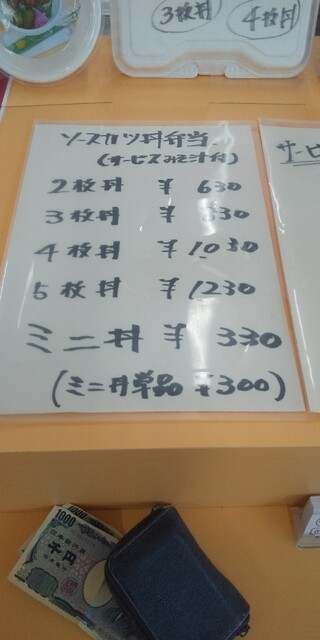 3枚丼 4枚丼
ソースカツ丼弁当
(サービスみそ汁付)
サービ
2枚丼 ¥ 630
3枚丼 ¥ 830
4枚丼 ¥1030
5枚丼 ¥1230
ミニ丼 ¥ 330
(ミニ丼単品 ¥300)
1000
日本銀行券
千円